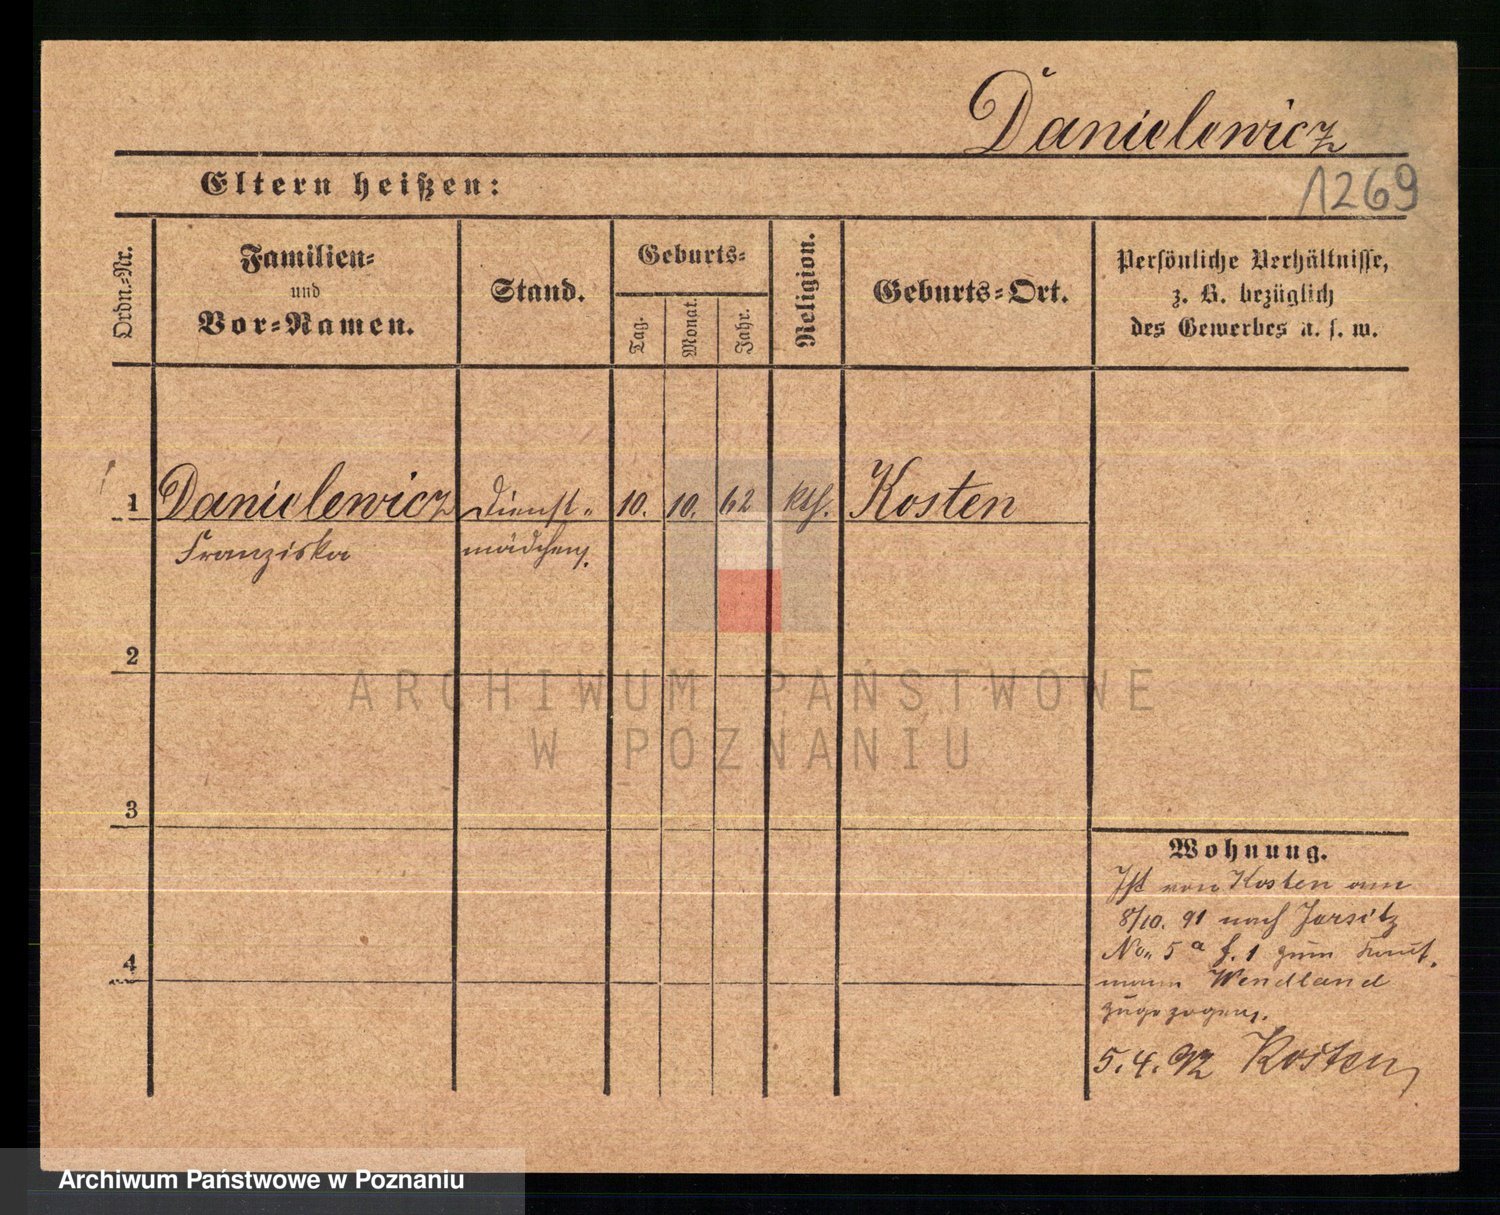 Danielewicz
Eltern heißen:
1269
Ordn.-Nr.
Familien-
und
Vor-Namen.
Stand.
Geburts-
Tag.
Monat.
Jahr.
Religion.
Geburts-Ort.
Persönliche Verhältnisse,
z. B. bezüglich
des Gewerbes u. s. w.
1 Danielewicz Dienst- 10. 10. 62 kth. Kosten
Franziska mädchen.
2
3
4
Wohnung.
Ist von Kosten am
8/10. 91 nach Jersitz
No. 5a b. 1 zum Kauf-
mann Wendland
zugezogen.
5.4.92 Kosten
ARCHIWUM PAŃSTWOWE
W POZNANIU
Archiwum Państwowe w Poznaniu